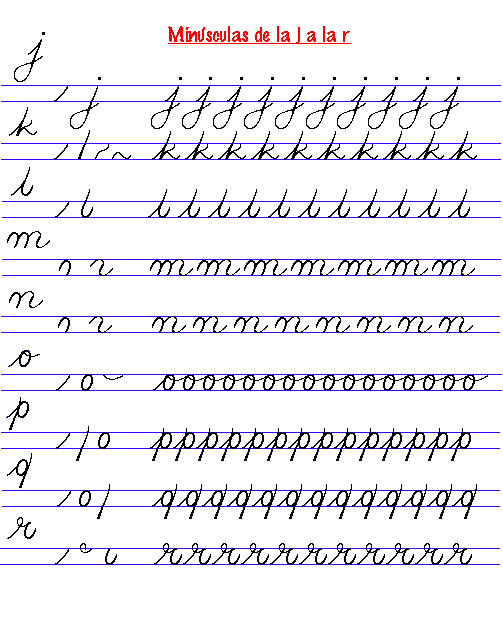 Minúsculas de la J a la r
j
j jjjjjjjjjj
k
kkkkkkkkkk
l
l lllllllllll
m
mmmmmmm
n
nnnnnnnn
o
o ooooooooooooooooo
p
o ppppppppppppp
q
o qqqqqqqqqqqqqq
r
rrrrrrrrrrr